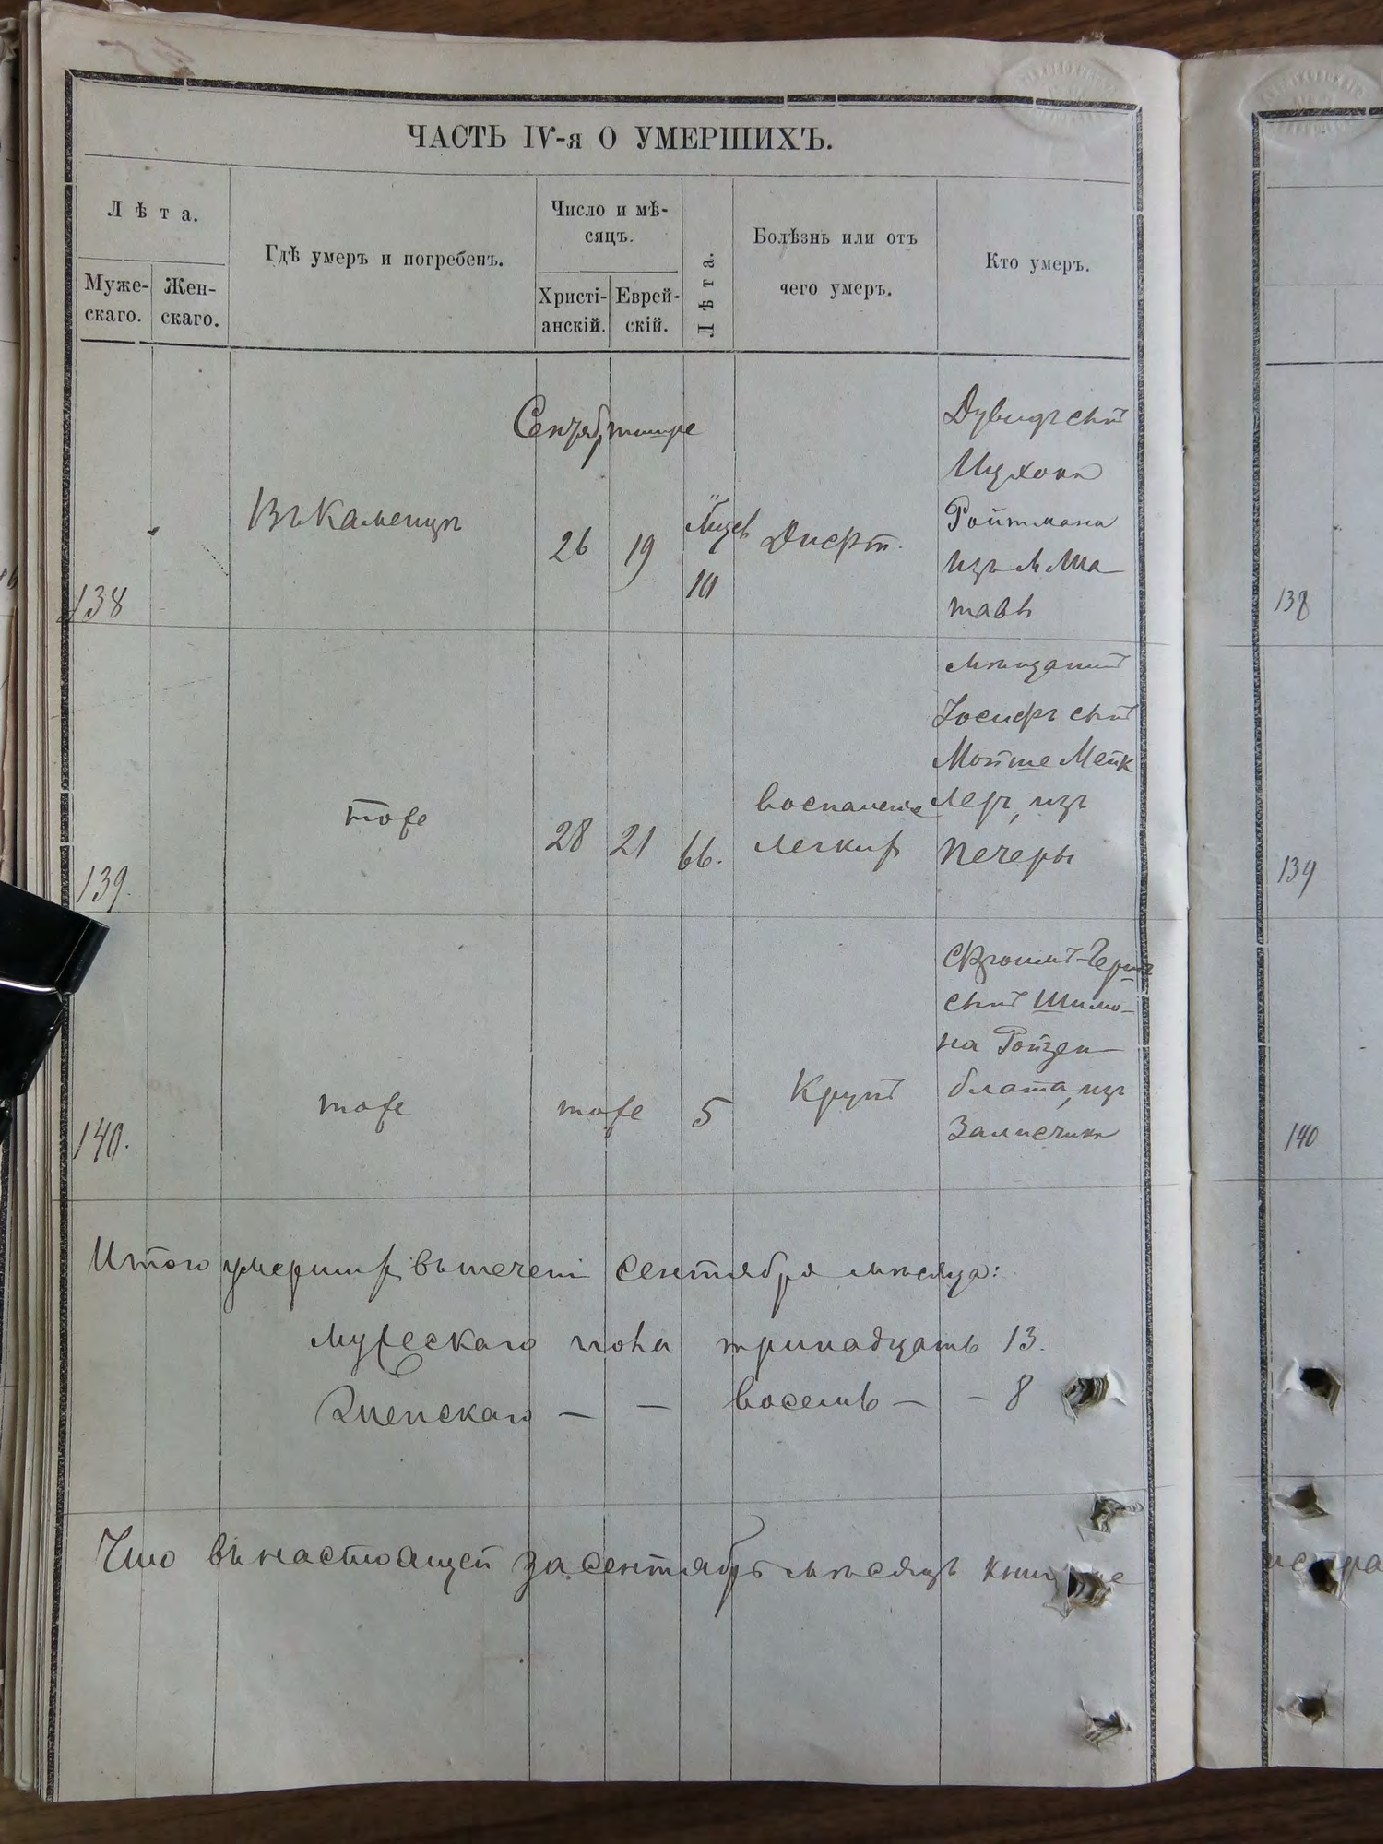 ЧАСТЬ IV-я О УМЕРШИХЪ.
Лѣта.
Муже-
скаго.
Жен-
скаго.
Гдѣ умеръ и погребенъ.
Число и мѣ-
сяцъ.
Христі-
анскій.
Еврей-
скій.
Лѣта.
Болѣзнь или отъ
чего умеръ.
Кто умеръ.
138
Въ Каменцѣ
Сентяб. тишре
26
19
10
Дифт.
Дувидъ сынъ
Ицхока
Ройтмана
изъ м Ша
тавы
139.
тоже
28
21
66.
воспаленіе
легкихъ
мѣщанинъ
Іосифъ сынъ
Мойше Мейк
леръ, изъ
Печеры
140.
тоже
тоже
5
Крупъ
Гершъ
сынъ Шимо-
на Ройзен
блата, изъ
Итого умершихъ въ теченіи сентября мѣсяца:
мужескаго пола тринадцать 13.
Женскаго — — восемь — — 8
Что въ настоящей за сентябрь мѣсяцъ
138
139
140